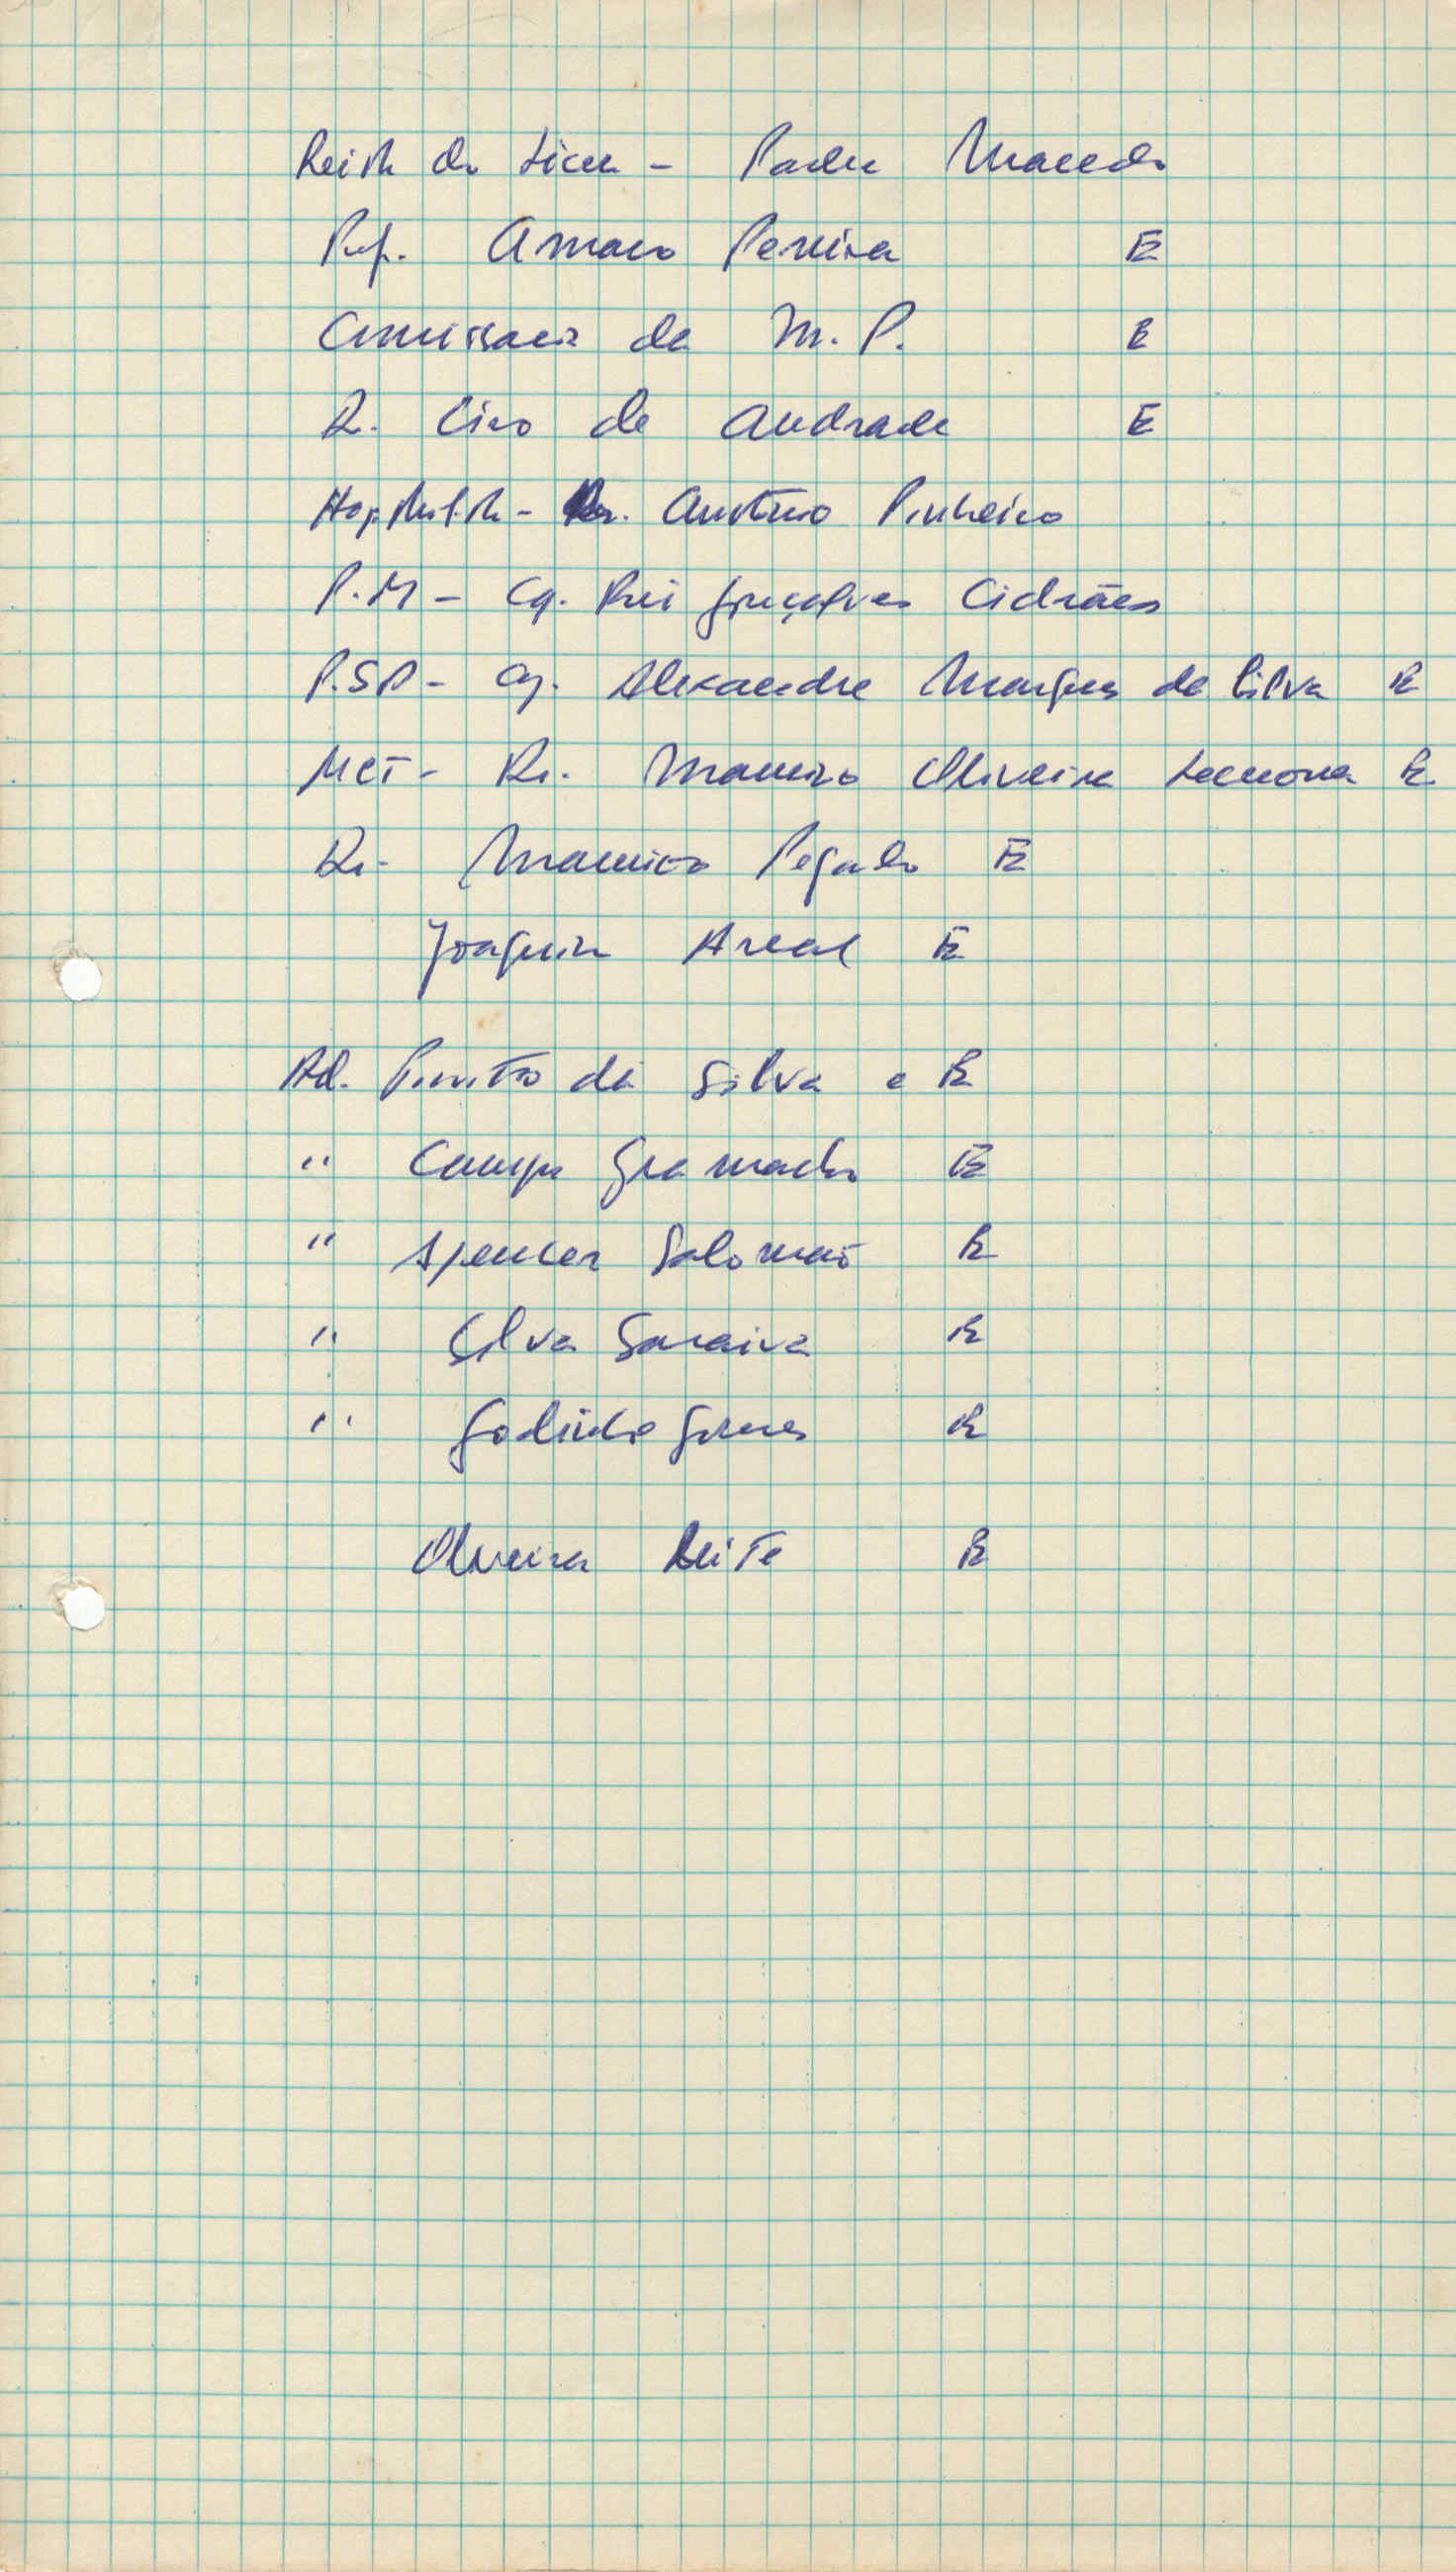 Reitor do Liceu - Padre Macedo
Prof. Amaro Pereira E
Comissario da M.P. E
Dr. Ciro de Andrade E
Hosp. Milit - Dr. António Pinheiro
P.M - Cap. Rui Gonçalves Cidrães
P.S.P - Cap. Alexandre Marques da Silva E
MCT - Dr. Mamiro Oliveira E
Dr. Pegado E
Joaquim Areal E
Ad. Pinto da Silva e E
" Campos Gramacho E
" Spencer Salomão E
" Silva Saraiva E
" Godinho Gomes E
Oliveira Leite E